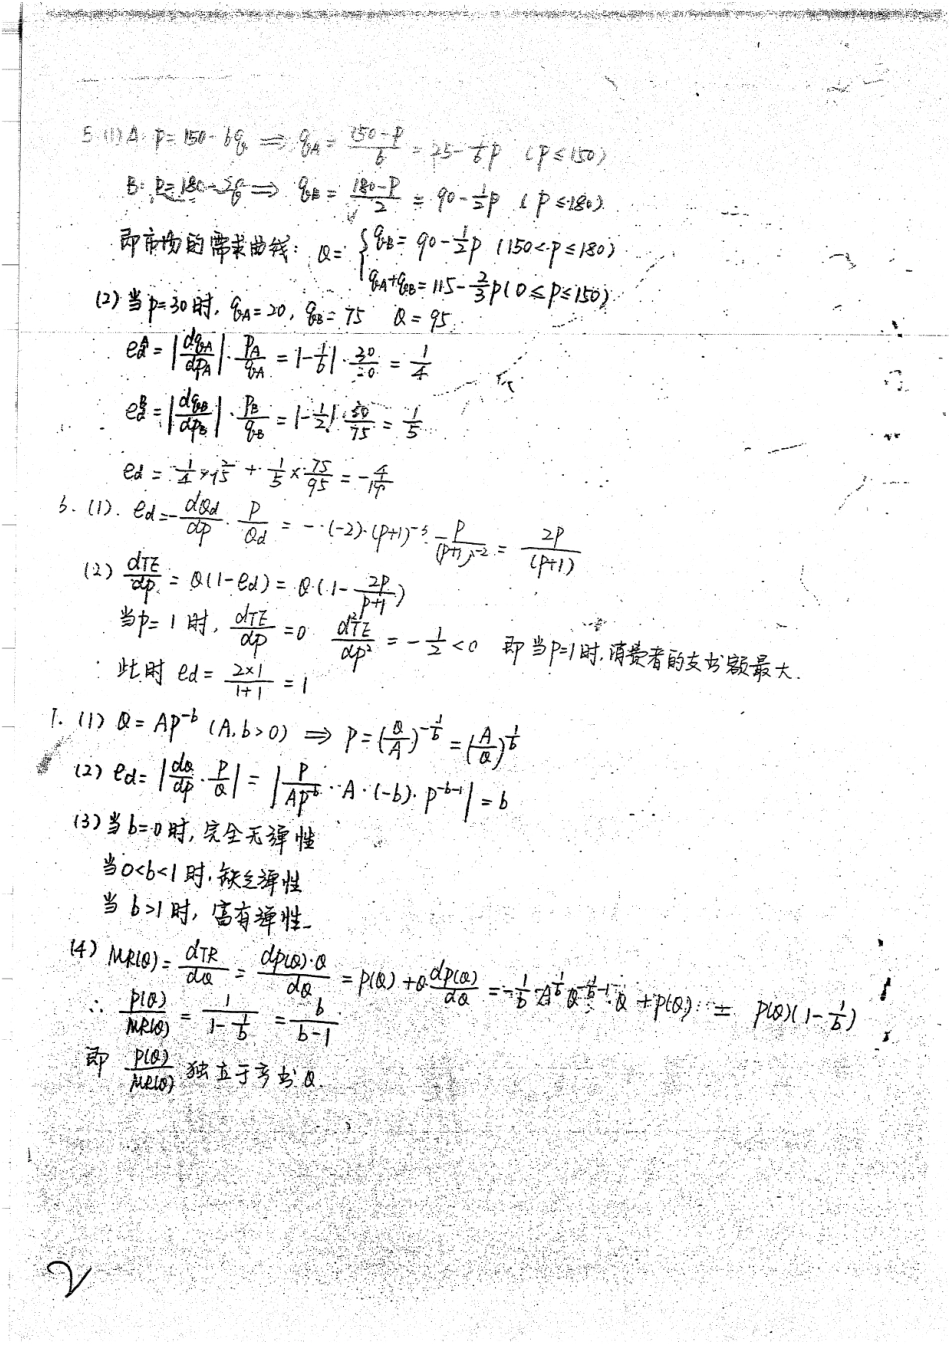 5.(1)A: P=150-6q ⇒ q_A = (150-P)/6 = 25-1/6P (P≤150)
B: P=180-2q ⇒ q_B = (180-P)/2 = 90-1/2P (P≤180)
即市场的需求曲线: Q= { q_B=90-1/2P (150<P≤180)
q_A+q_B=115-2/3P (0≤P≤150)
(2)当P=30时, q_A=20, q_B=75 Q=95
e_d^A = |dq_A/dP_A|·P_A/q_A = |-1/6|·30/20 = 1/4
e_d^B = |dq_B/dP_B|·P_B/q_B = |-1/2|·30/75 = 1/5
6. (1). e_d=-dQ_d/dP·P/Q_d = -(-2)·(P+1)^-3·P/(P+1)^-2 = 2P/(P+1)
(2) dTE/dP = Q(1-e_d) = Q·(1-2P/(P+1))
当P=1时, dTE/dP=0 d²TE/dP² = -1/2<0 即当P=1时,消费者的支出额最大.
此时 e_d = (2×1)/(1+1) = 1
7. (1) Q=AP^-b (A,b>0) ⇒ P=(Q/A)^(-1/b) = (A/Q)^(1/b)
(2) e_d= |dQ/dP·P/Q| = |P/AP^-b·A·(-b)·P^(-b-1)| = b
(3)当b=0时,完全无弹性
当0<b<1时,缺乏弹性
当b>1时,富有弹性
(4) MR(Q)= dTR/dQ = dP(Q)·Q/dQ = P(Q)+Q·dP(Q)/dQ = -1/b·A^(1/b)·Q^(-1/b-1)·Q+P(Q) = P(Q)(1-1/b)
∴ P(Q)/MR(Q) = 1/(1-1/b) = b/(b-1)
即 P(Q)/MR(Q) 独立于产出Q.
2